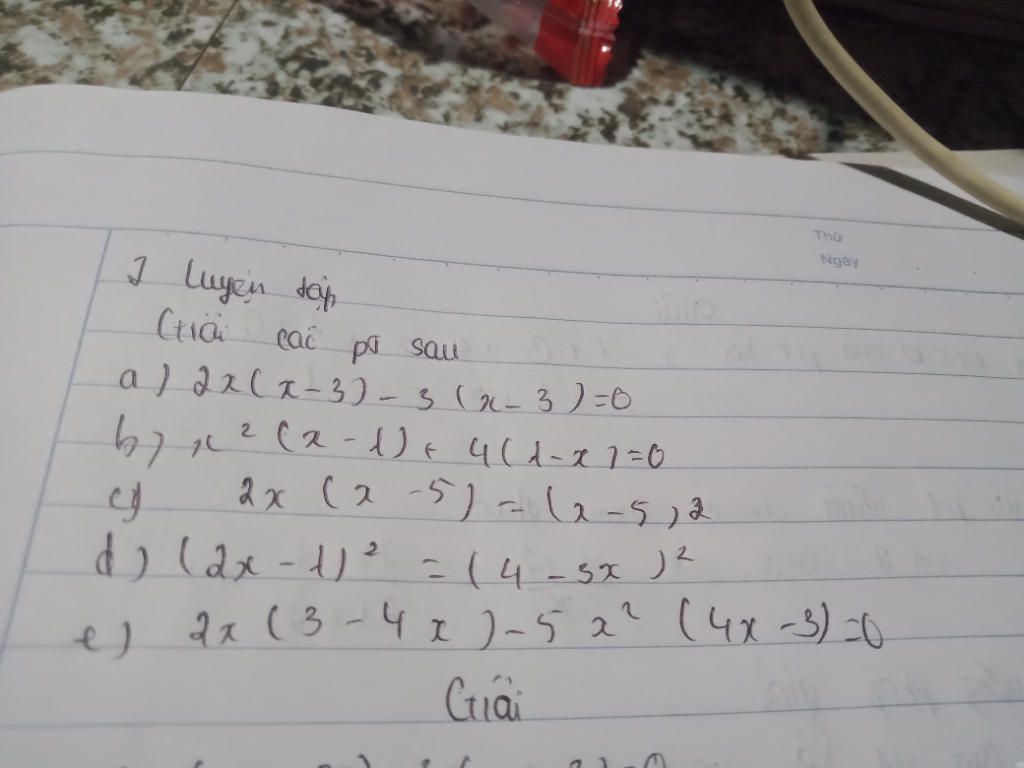 Thứ
Ngày
I Luyện tập
Giải các pt sau
a) 2x(x-3) - 3(x-3)=0
b) x² (x-1) + 4(1-x)=0
c) 2x (x-5) = (x-5)2
d) (2x-1)² = (4-3x)²
e) 2x(3-4x)-5x² (4x-3)=0
Giải